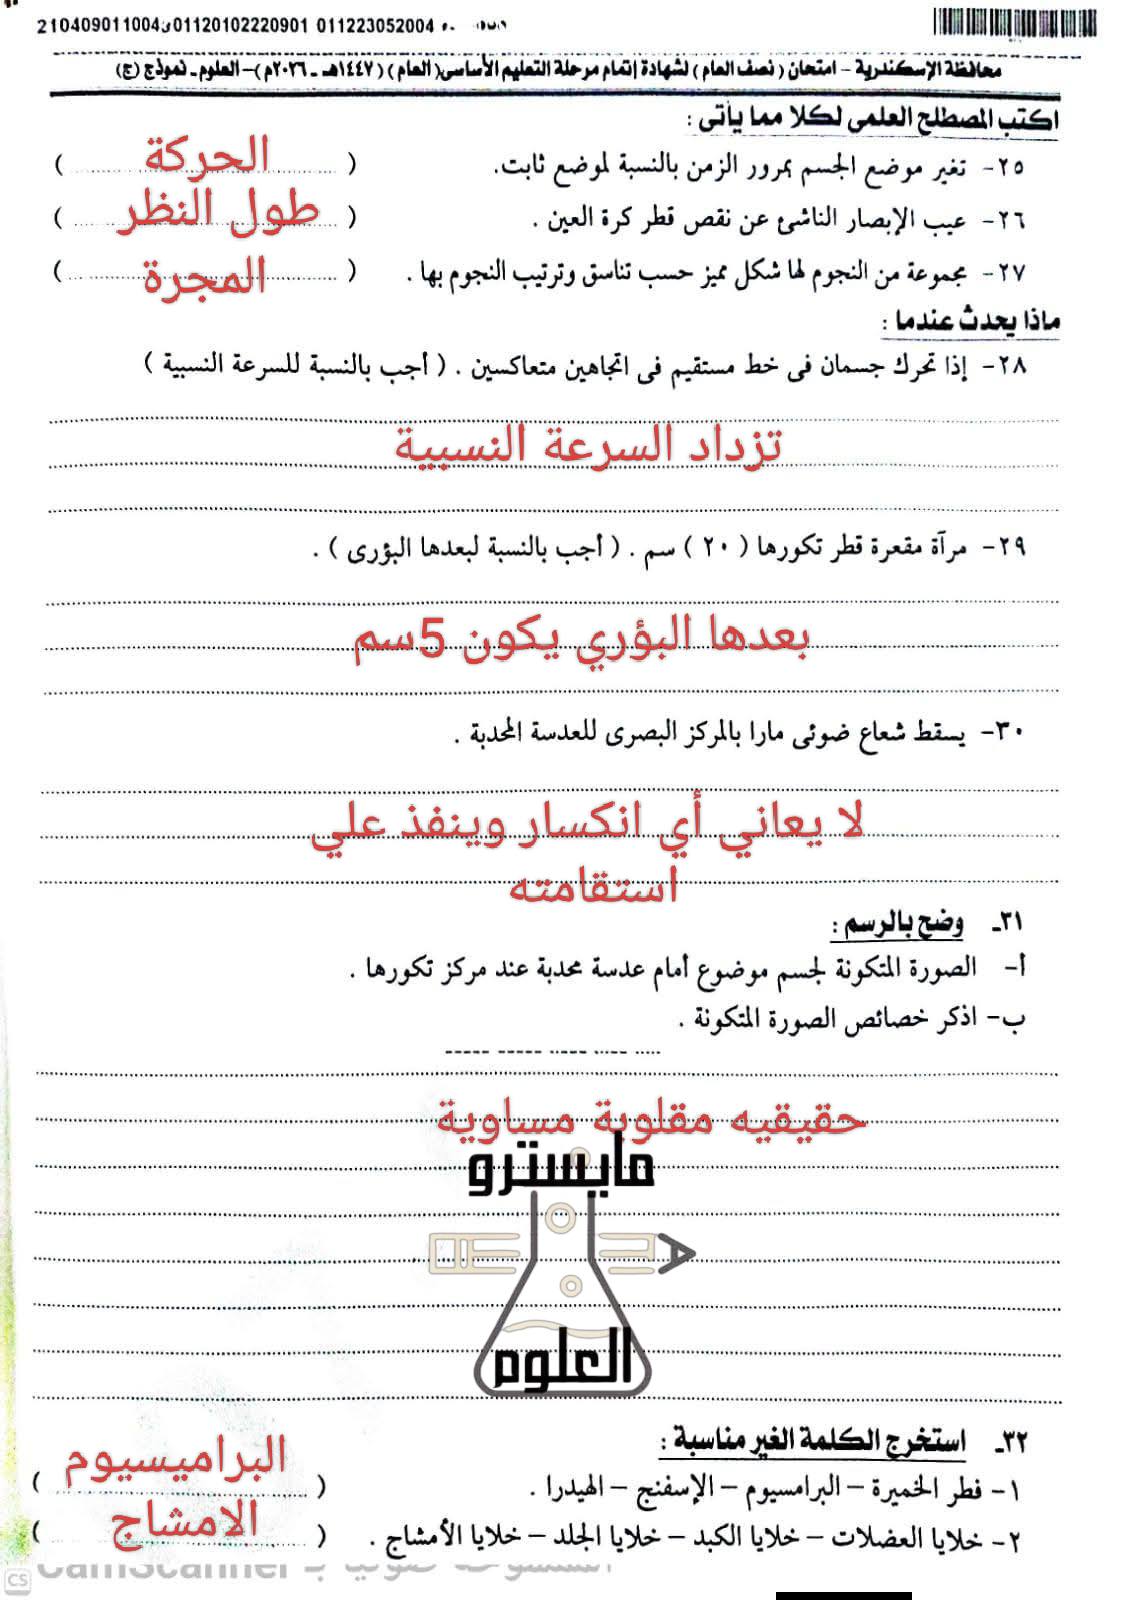 210409011004 01120102220901 011223052004
محافظة الإسكندرية - امتحان ( نصف العام ) لشهادة إتمام مرحلة التعليم الأساسى( العام ) ( ١٤٤٧هـ - ٢٠٢٦م )- العلوم - نموذج (ج)
اكتب المصطلح العلمى لكلا مما يأتى :
٢٥- تغير موضع الجسم بمرور الزمن بالنسبة لموضع ثابت. ( الحركة )
٢٦- عيب الإبصار الناشئ عن نقص قطر كرة العين . ( طول النظر )
٢٧- مجموعة من النجوم لها شكل مميز حسب تناسق وترتيب النجوم بها . ( المجرة )
ماذا يحدث عندما :
٢٨- إذا تحرك جسمان فى خط مستقيم فى اتجاهين متعاكسين . ( أجب بالنسبة للسرعة النسبية )
تزداد السرعة النسبية
٢٩- مرآة مقعرة قطر تكورها ( ٢٠ ) سم . ( أجب بالنسبة لبعدها البؤرى ) .
بعدها البؤري يكون 5سم
٣٠- يسقط شعاع ضوئى مارا بالمركز البصرى للعدسة المحدبة .
لا يعاني أي انكسار وينفذ علي
استقامته
٣١- وضح بالرسم :
أ- الصورة المتكونة لجسم موضوع أمام عدسة محدبة عند مركز تكورها .
ب- اذكر خصائص الصورة المتكونة .
حقيقيه مقلوبة مساوية
مايسترو
العلوم
٣٢- استخرج الكلمة الغير مناسبة :
١- فطر الخميرة – البرامسيوم – الإسفنج – الهيدرا . ( البراميسيوم )
٢- خلايا العضلات – خلايا الكبد – خلايا الجلد – خلايا الأمشاج . ( الامشاج )
الممسوحة ضوئيا بـ CamScanner
CS